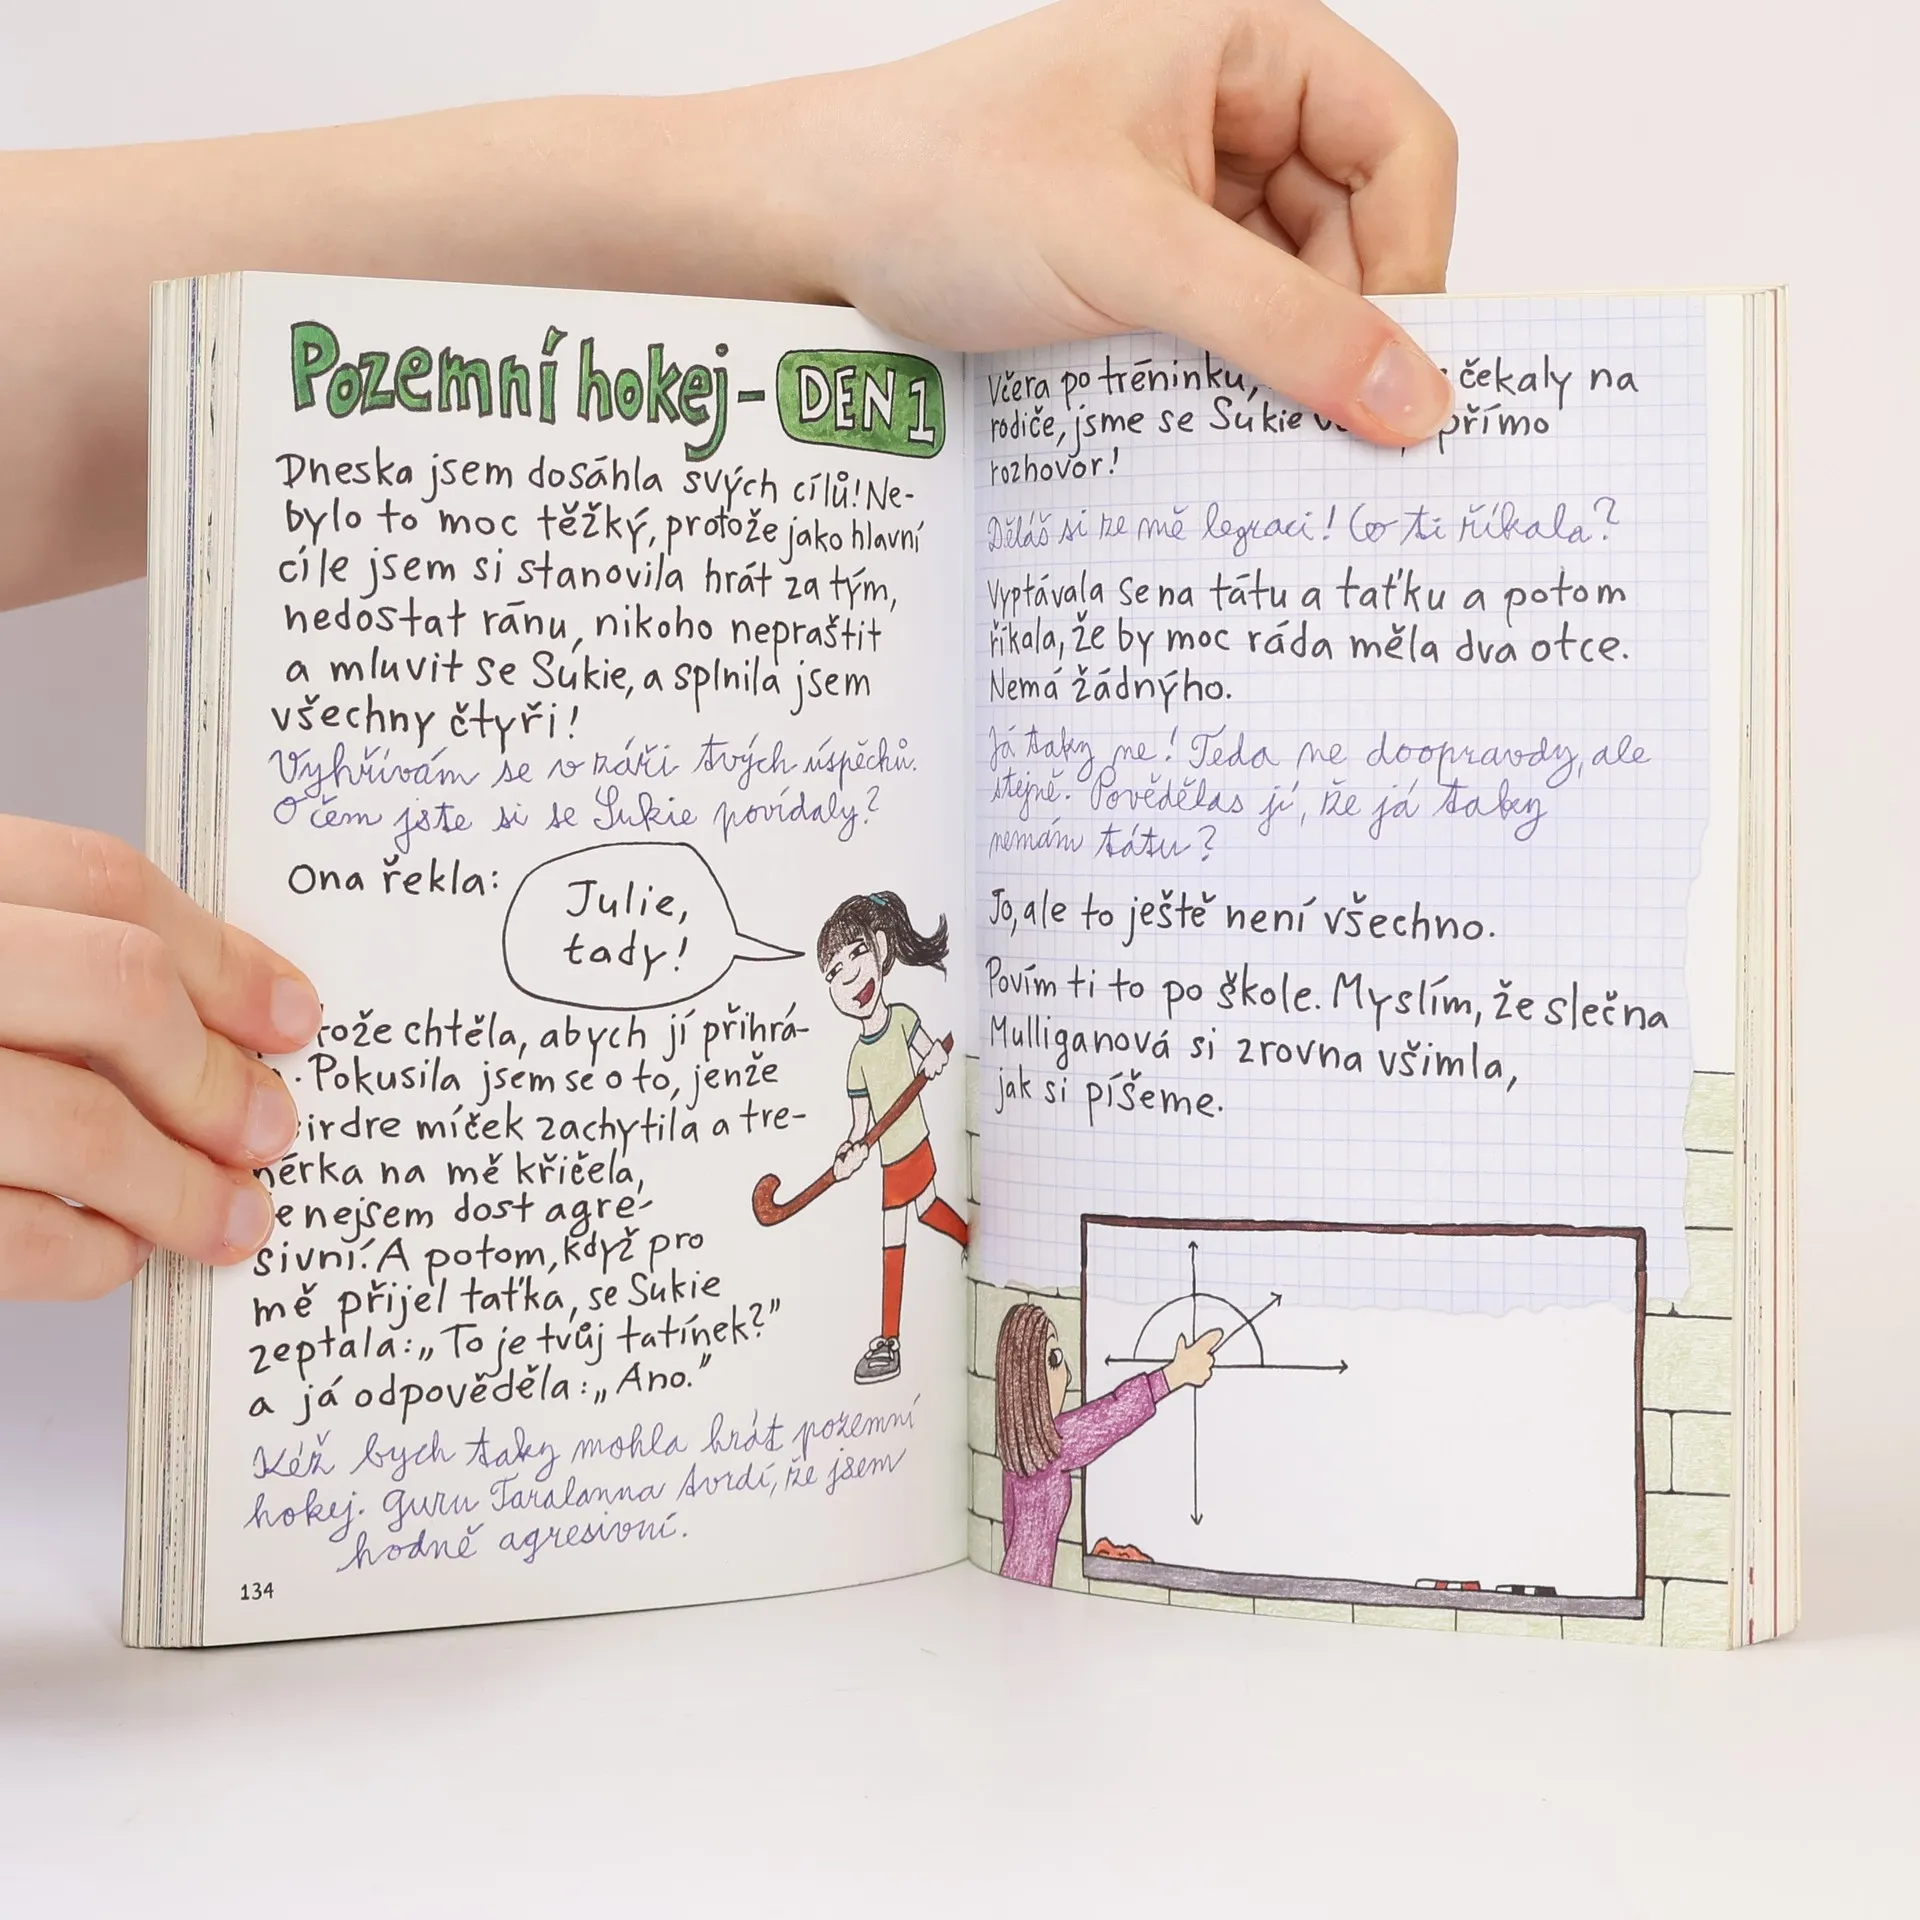 Pozemní hokej - DEN 1
Dneska jsem dosáhla svých cílů! Ne-
bylo to moc těžký, protože jako hlavní
cíle jsem si stanovila hrát za tým,
nedostat ránu, nikoho nepraštit
a mluvit se Sukie, a splnila jsem
všechny čtyři!
Vyhřívám se v záři tvých úspěchů.
O čem jste si se Sukie povídaly?
Ona řekla:
Julie,
tady!
chtěla, abych jí přihrá-
Pokusila jsem se o to, jenže
míček zachytila a tre-
nérka na mě křičela,
nejsem dost agre-
sivní. A potom, když pro
mě přijel taťka, se Sukie
zeptala: „To je tvůj tatínek?"
a já odpověděla: „Ano."
Kéž bych taky mohla hrát pozemní
hokej. Guru Taralanna tvrdí, že jsem
hodně agresivní.
134
Včera po tréninku, čekaly na
rodiče, jsme se Sukie přímo
rozhovor!
Děláš si ze mě legraci! Co ti říkala?
Vyptávala se na tátu a taťku a potom
říkala, že by moc ráda měla dva otce.
Nemá žádnýho.
Já taky ne! Teda ne doopravdy, ale
stejně. Povědělas jí, že já taky
nemám tátu?
Jo, ale to ještě není všechno.
Povím ti to po škole. Myslím, že slečna
Mulliganová si zrovna všimla,
jak si píšeme.